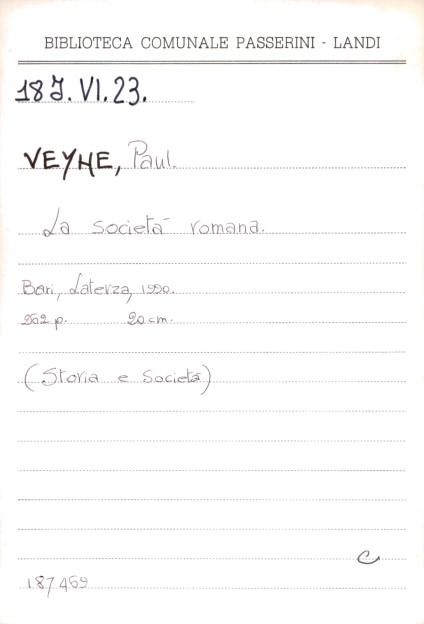 BIBLIOTECA COMUNALE PASSERINI - LANDI
18 J. VI. 23.
VEYNE, Paul.
La società romana.
Bari, Laterza, 1990.
262 p. 20 cm.
(Storia e Società)
C
187469